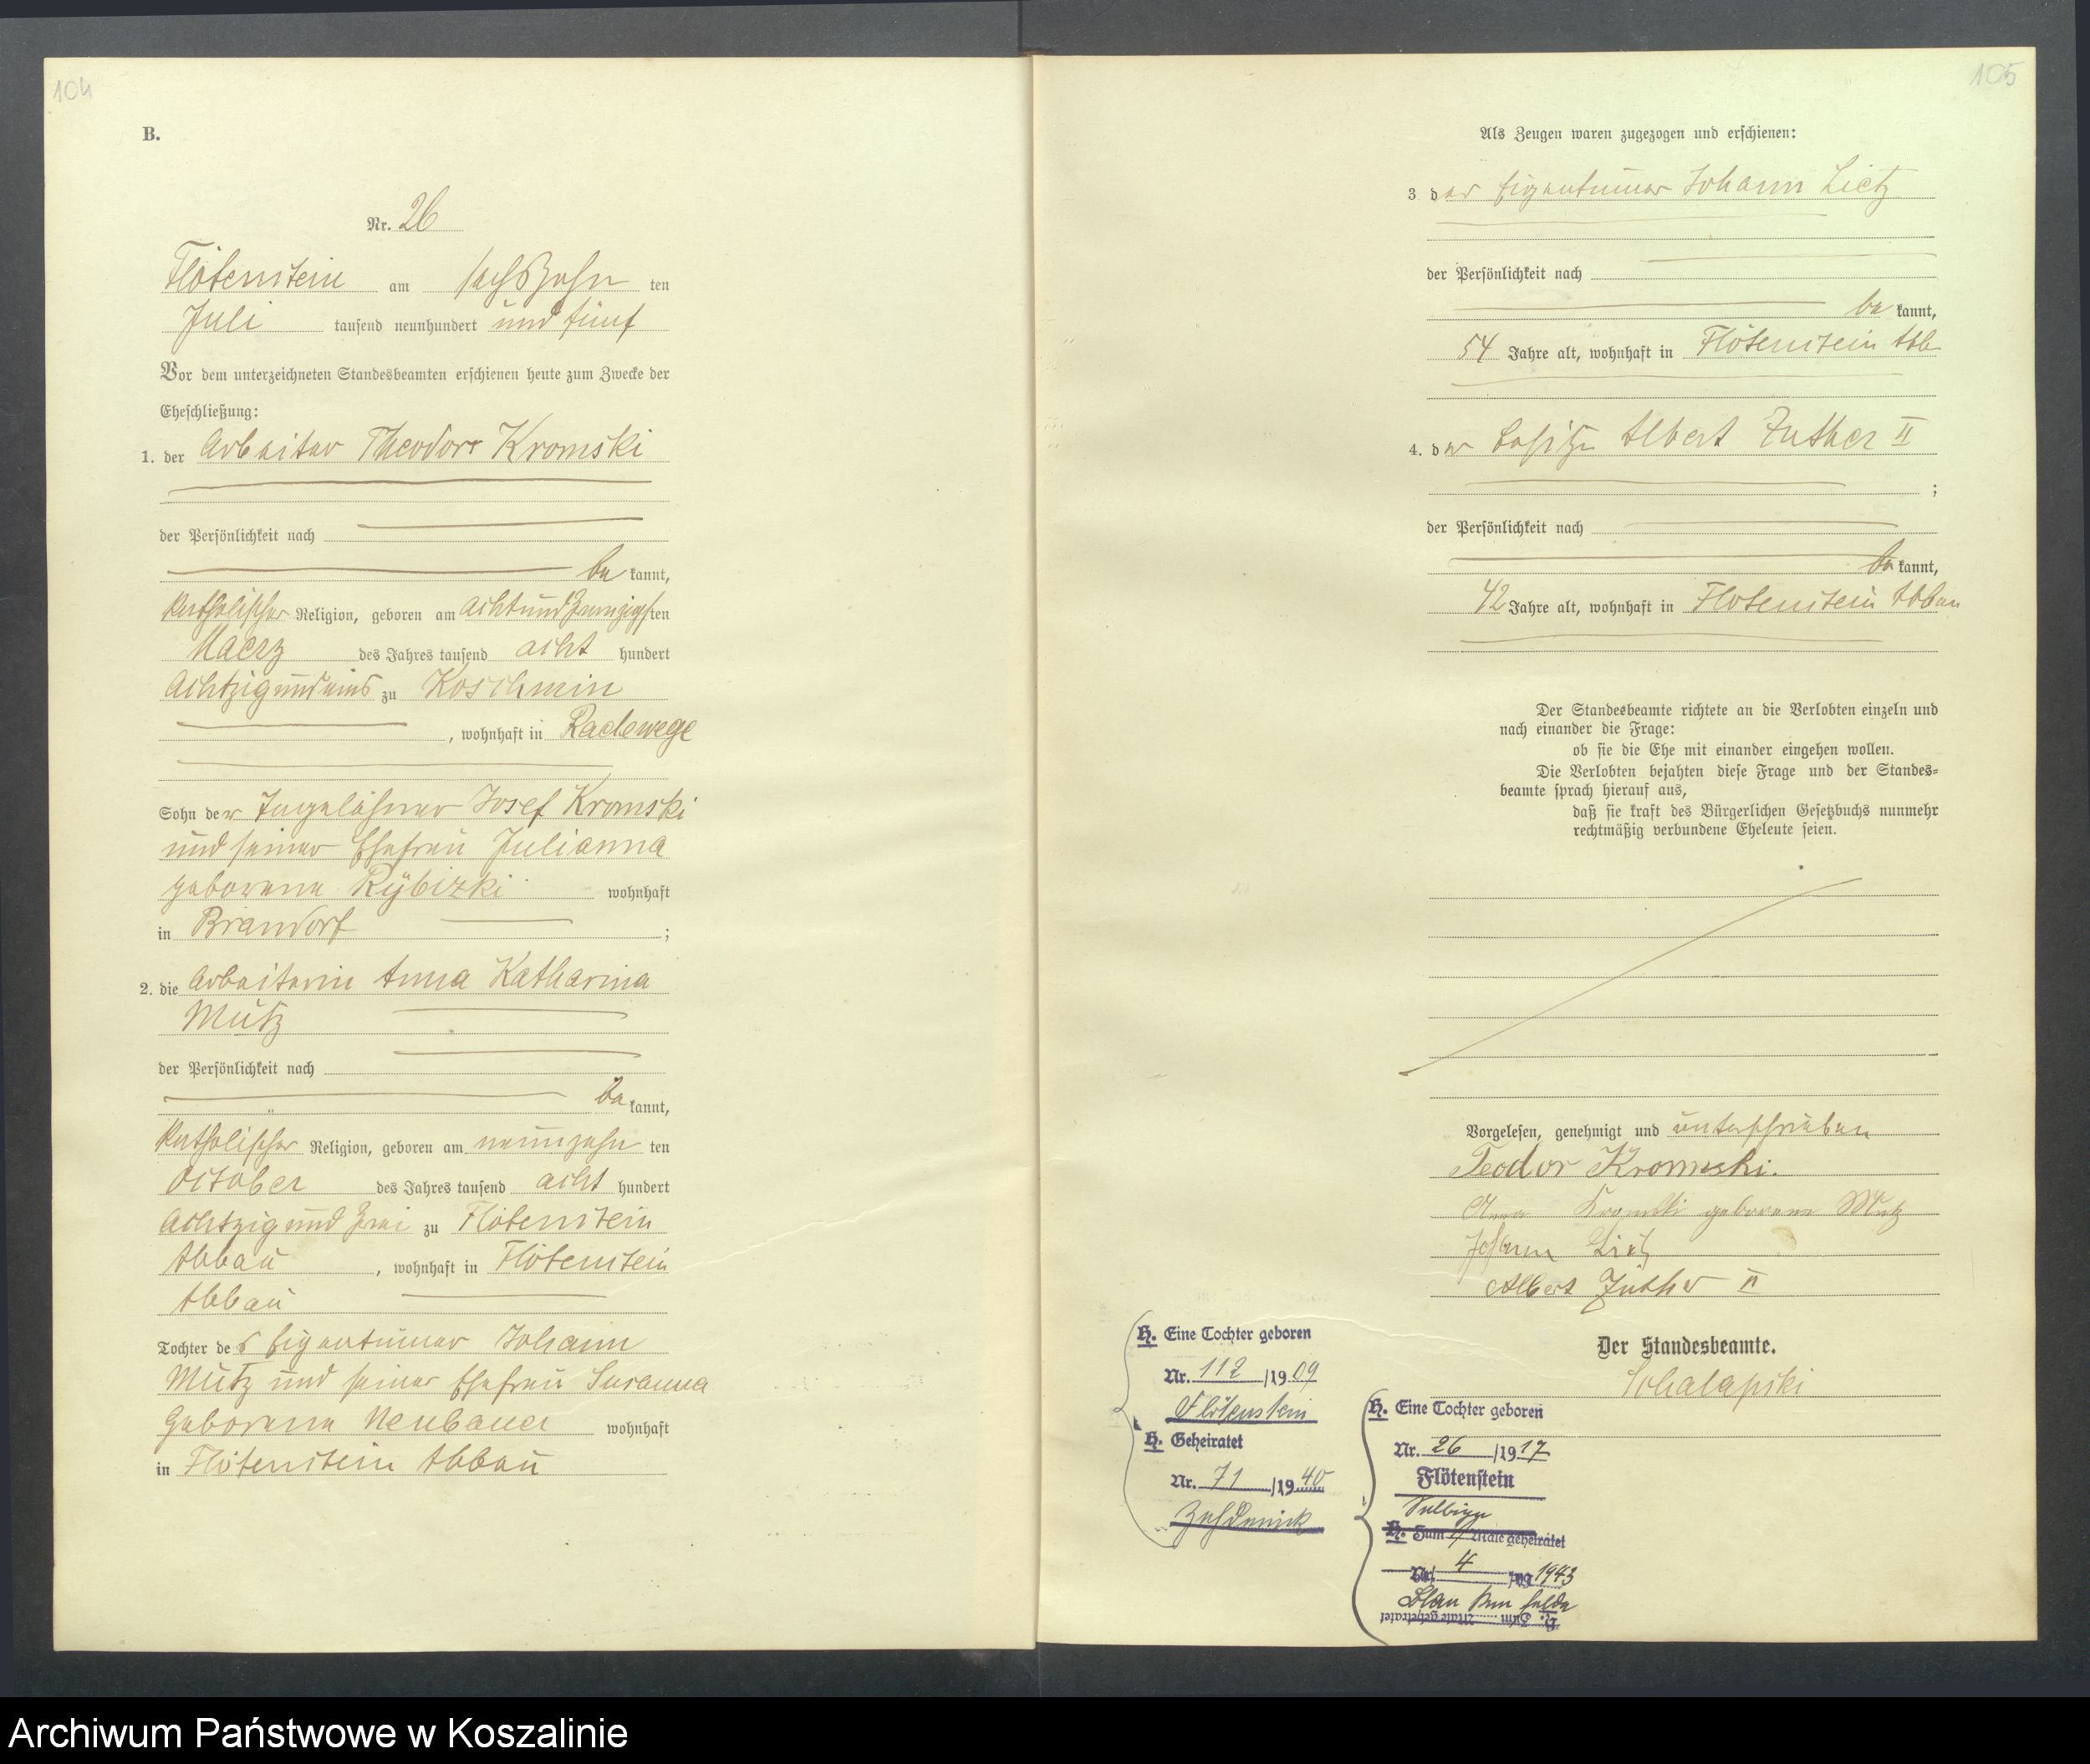 104
B.
Nr. 26
Flötenstein am sechszehn ten
Juli tausend neunhundert und fünf
Vor dem unterzeichneten Standesbeamten erschienen heute zum Zwecke der
Eheschließung:
1. der Arbeiter Theodor Kromski
der Persönlichkeit nach
be kannt,
katholischer Religion, geboren am achtundzwanzigsten
Maerz des Jahres tausend acht hundert
achtzigundeins zu Koschmin
, wohnhaft in Radewege
Sohn der Tagelöhner Josef Kromski
und seiner Ehefrau Julianna
geborene Rÿbizki wohnhaft
in Brandorf ;
2. die Arbeiterin Anna Katharina
Mutz
der Persönlichkeit nach
be kannt,
katholischer Religion, geboren am neunzehn ten
October des Jahres tausend acht hundert
achtzig und zwei zu Flötenstein
Abbau , wohnhaft in Flötenstein
Abbau
Tochter des Eigentümer Johann
Mutz und seiner Ehefrau Susanna
geborene Neubauer wohnhaft
in Flötenstein Abbau
105
Als Zeugen waren zugezogen und erschienen:
3 der Eigentümer Johann Lietz
der Persönlichkeit nach
be kannt,
54 Jahre alt, wohnhaft in Flötenstein Abb
4. der Besitzer Albert Zuther II
;
der Persönlichkeit nach
be kannt,
42 Jahre alt, wohnhaft in Flötenstein Abbau
Der Standesbeamte richtete an die Verlobten einzeln und
nach einander die Frage:
ob sie die Ehe mit einander eingehen wollen.
Die Verlobten bejahten diese Frage und der Standes=
beamte sprach hierauf aus,
daß sie kraft des Bürgerlichen Gesetzbuchs nunmehr
rechtmäßig verbundene Eheleute seien.
Vorgelesen, genehmigt und unterschrieben
Teodor Kromski.
Anna Kromski geborene Mutz
Johann Lietz
Albert Zuther II
Der Standesbeamte.
Schalapski
H. Eine Tochter geboren
Nr. 112 /19 09
Flötenstein
H. Geheiratet
Nr. 71 /19 40
Zehdenick
H. Eine Tochter geboren
Nr. 26 /19 17
Flötenstein
H. Zum 1 Male geheiratet
Nr. 4 1943
H. Zum Male geheiratet
Archiwum Państwowe w Koszalinie